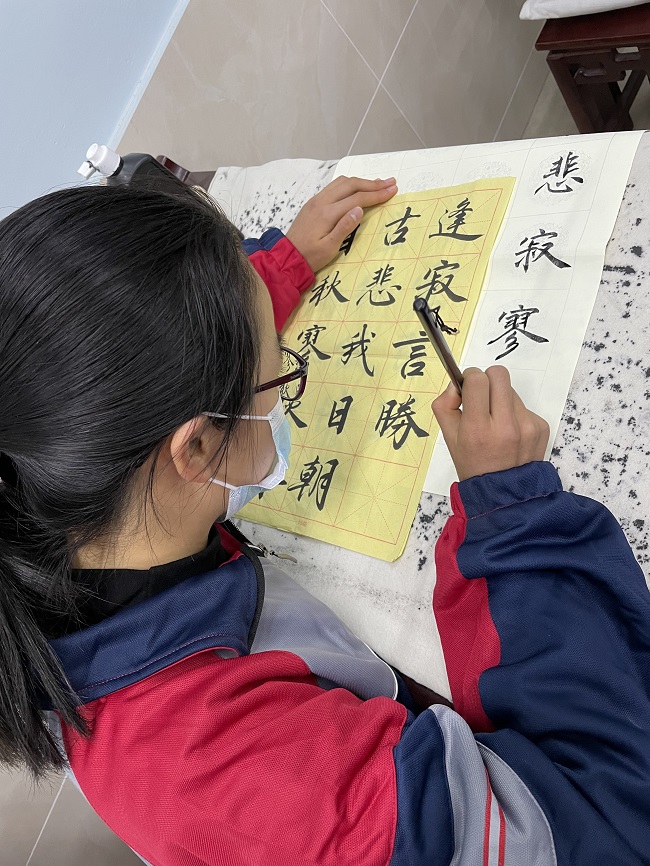 古逢
秋悲寂
寥我言
日勝
朝
悲寂寥